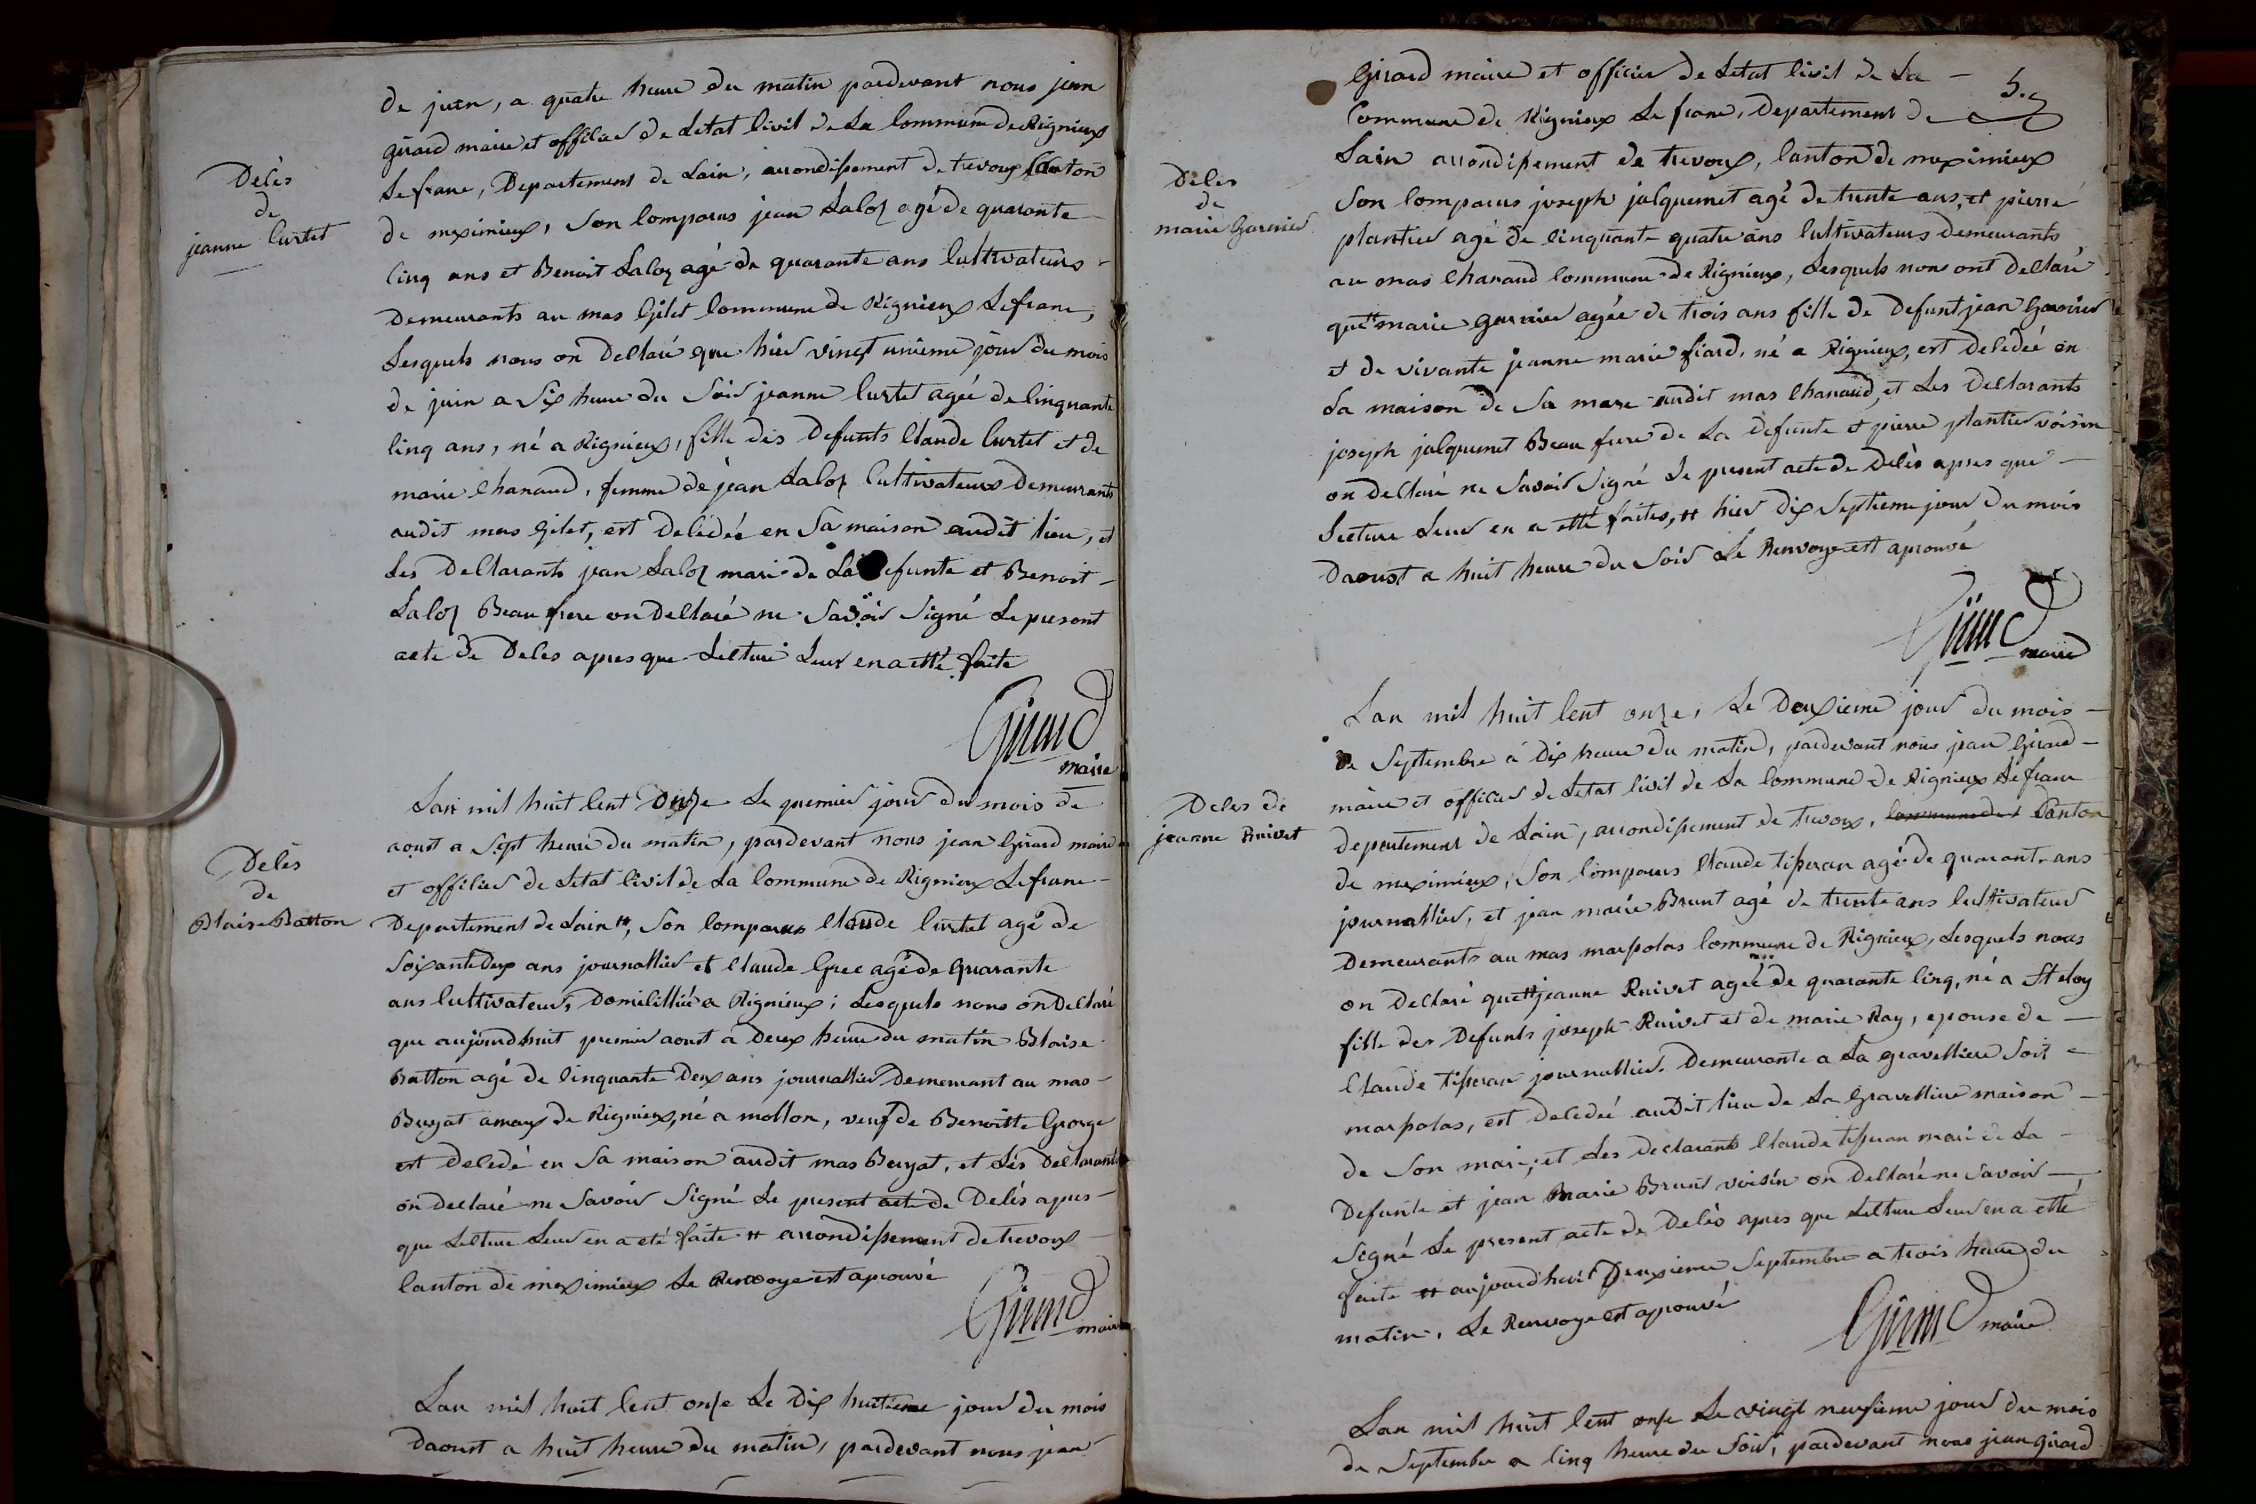 de juin, a quatre heure du matin pardevant nous jean
girard maire et officier de Letat Civil de La Commune de Rignieux
Le franc, Departement de Lain, arrondissement de trevoux Canton
de meximieux, Son Comparus jean Laloz agé de quarante
Cinq ans et Benoit Laloz agé de quarante ans Cultivateurs
Demeurants au mas Gilet Commune de Rignieux Lefranc,
Lesquels nous on Declaré que hier vingt unieme jour du mois
de juin a Six heure du Soir jeanne Curtet agée de Cinquante
Cinq ans, né a Rignieux, fille des Defunts Claude Curtet et de
marie Chanaud, femme de jean Laloz Cultivateurs Demeurants
audit mas Gilet, est Decédée en Sa maison audit lieu, et
Les Declarants jean Laloz mari de La Defunte et Benoit
Laloz Beau frere on Declaré ne Savoir Signé Le present
acte de Deces apres que Lecture Leur en a etté faite
Girard
maire
Décès
de
jeanne Curtet
Lan mil huit Cent Onze Le premier jour du mois de
aoust a Sept heure du matin, pardevant nous jean Girard maire
et officier de Letat Civil de La Commune de Rignieux Lefranc
Departement de Lain #, Son Comparus Claude Curtet agé de
Soixante Deux ans journallier et Claude Grec agé de Quarante
ans Cultivateurs, Domicilliés a Rignieux; Lesquels nous on Declaré
que aujourdhuit premier aoust a Deux heure du matin Blaise
Batton agé de Cinquante Deux ans journallier Demeurant au mas
Bugat amas de Rignieux, né a mollon, veuf de Benoitte George
est Decedé en Sa maison audit mas Bugat, et Lés Declarants
on declaré ne Savoir Signé Le present acte de Décés apres
que Lecture Leur en a eté faite # arrondissement de trevoux
Canton de meximieux Le Renvoye est aprouvé
Girard
maire
Décès
de
Blaise Batton
Lan mil huit Cent onze Le Dix huitieme jour du mois
Daoust a huit heure du matin, pardevant nous jean
5.
Girard maire et officier de Letat Civil de La
Commune de Rignieux Le franc, Departement de
Lain arrondissement de trevoux, Canton de meximieux
Son Comparus joseph jacquemet agé de trente ans, et pierre
plantier agé de Cinquante quatre ans Cultivateurs Demeurants
au mas Chanaud Commune de Rignieux, Lesquels nous ont Declaré
que # marie garnier agée de trois ans fille de Defunt jean Garnier
et de vivante jeanne marie fiard, né a Rignieux, est Decédée en
La maison de Sa mere audit mas Chanaud, et Les Declarants
joseph jacquemet Beau frere de La Defunte et pierre plantier voisin
on Declaré ne Savoir Signé Le present acte de Décès apres que
Lecture Leur en a etté faites, # hier Dix Septieme jour du mois
Daoust a huit heure du Soir Le Renvoye est aprouvé
Girard
maire
Deces
de
marie Garnier
Lan mil huit Cent onze, Le Deuxieme jour du mois
de Septembre à Dix heure du matin, pardevant nous jean Girard
maire et officier de Letat Civil de La Commune de Rignieux Lefranc
departement de Lain, arrondissement de trevoux, Canton
de meximieux, Son Comparus Claude tisseran agé de quarant ans
journallier, et jean marie Brunt agé de trente ans Cultivateur
Demeurants au mas marpolas Commune de Rignieux, Lesquels nous
on Declaré que # jeanne Ruivet agée de quarante Cinq, né a St eloy
fille des Defunts joseph Ruivet et de marie Ray, epouse de
Claude tisseran journallier Demeurante a La gravelliere Soit
marpolas, est decedée audit lieu de La Gravelliere maison
de Son mari; et Les Declarants Claude tisseran mari de La
Defunte et jean Marie Brunt voisin on Declaré ne Savoir
Signé Le present acte de Décès apres que Lecture Leur en a etté
faite # aujourdhuit Deuxieme Septembre a trois heure du
matin. Le Renvoye est aprouvé
Girard maire
Deces de
jeanne Ruivet
Lan mil huit Cent onze Le vingt neufieme jour du mois
de Septembre a Cinq heure du Soir, pardevant nous jean Girard